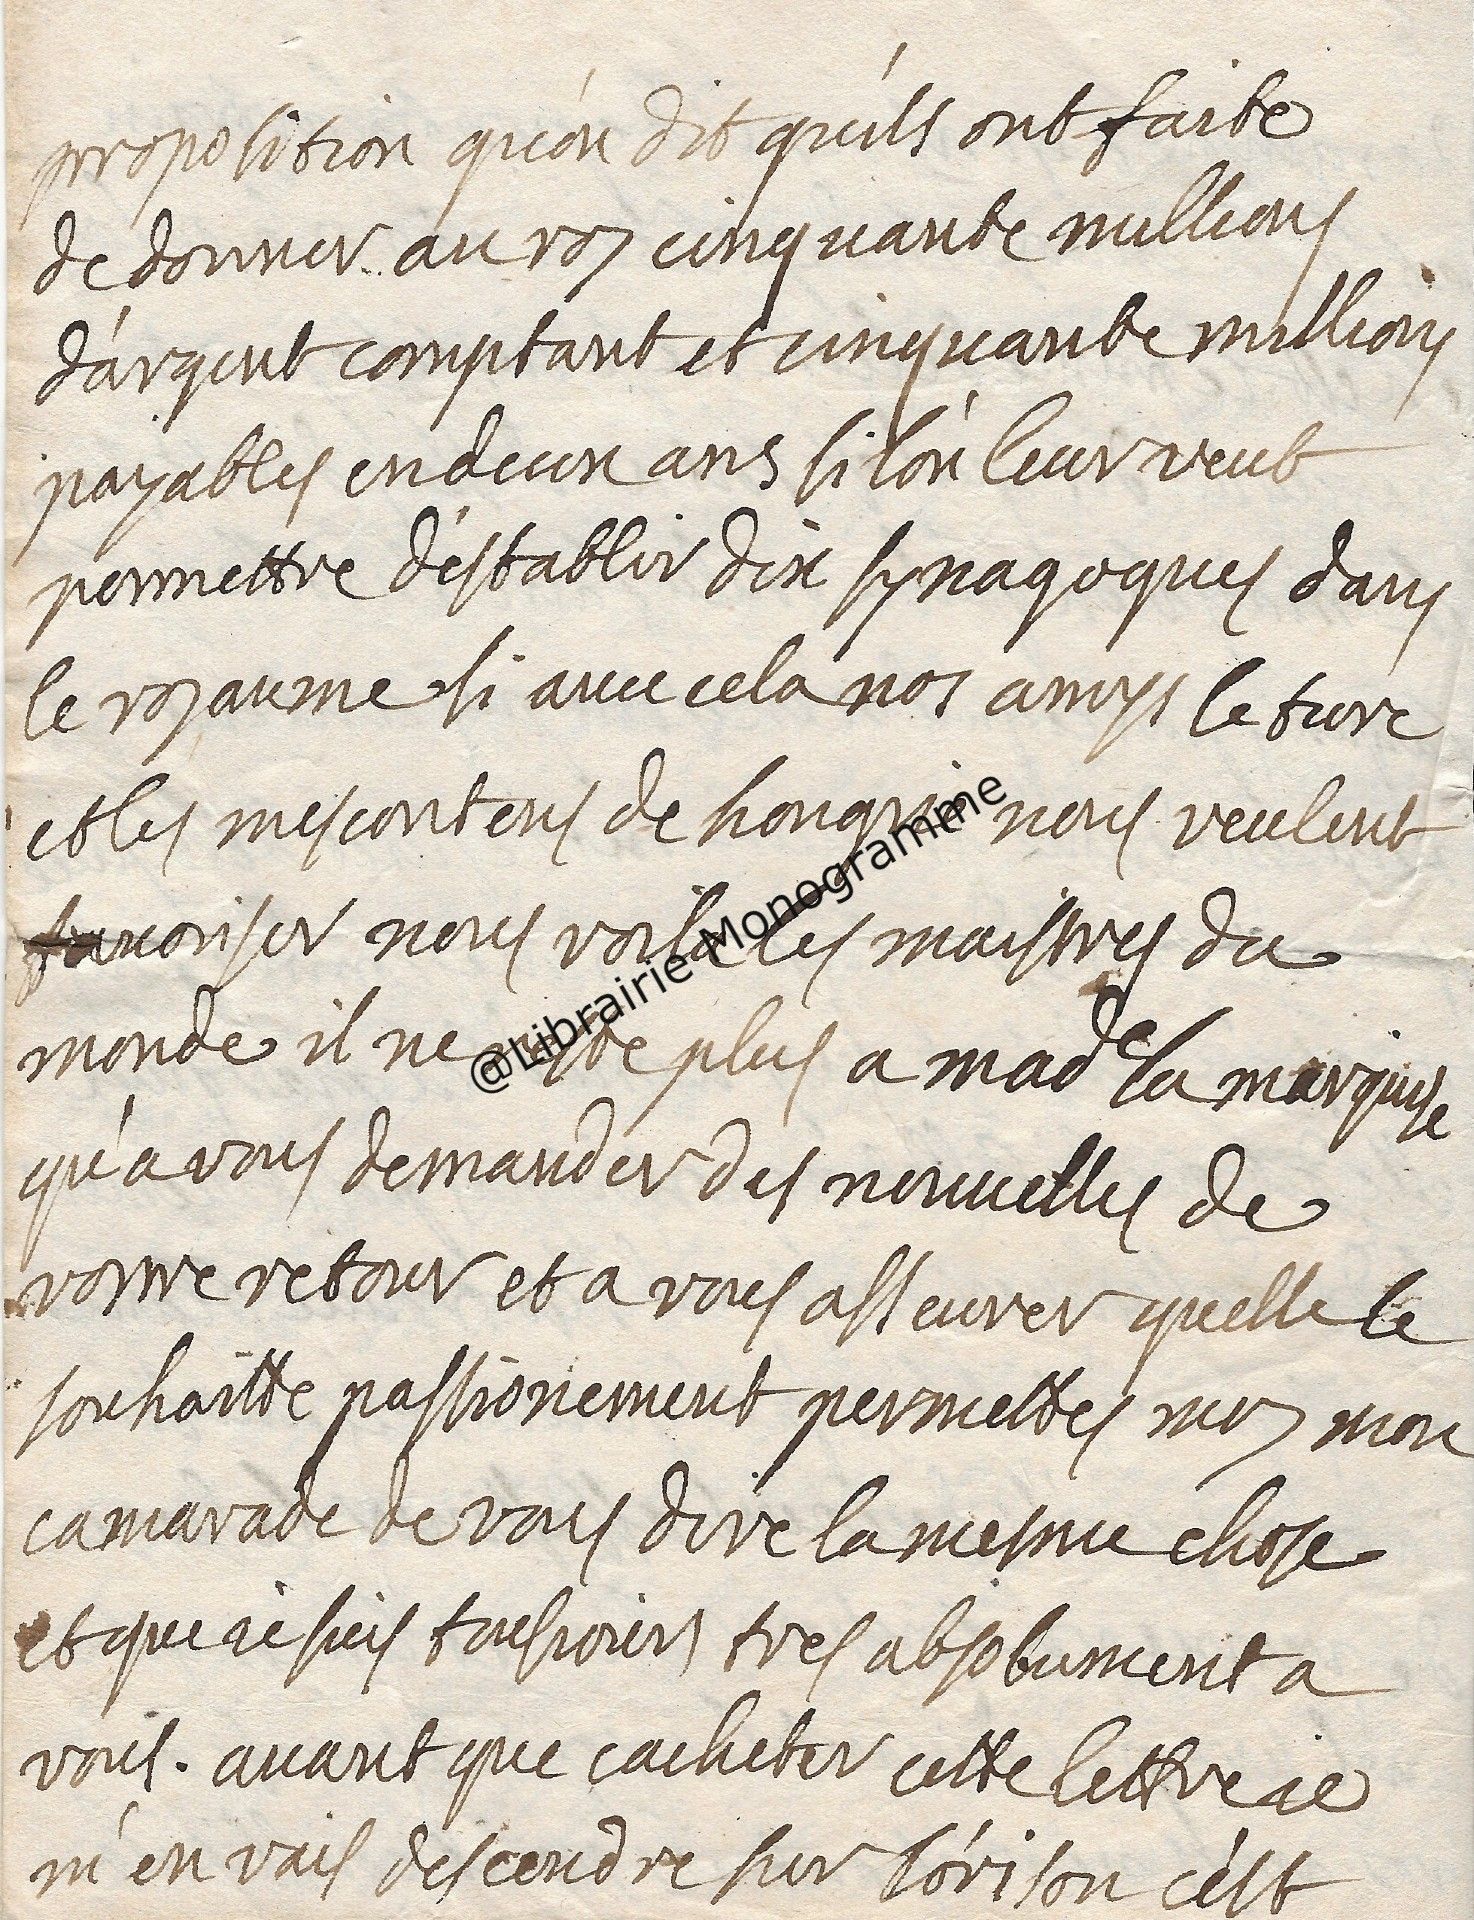 proposition qu'on dit qu'ils ont faite
de donner au roy cinquante millions
d'argent comptant et cinquante millions
payables en deux ans si l'on leur veut
permettre d'establir dix synagogues dans
le royaume si avec cela nos amys le turc
et les mescontens de hongrie nous veulent
favoriser nous voila les maistres du
monde il ne reste plus a mad^e la marquise
qu'a vous demander des nouvelles de
vostre retour et a vous asseurer quelle le
souhaitte passionement permettes moy mon
camarade de vous dire la mesme chose
et que ie suis tousiours tres absolument a
vous. avant que cacheter cette lettre ie
m'en vais descendre sur l'orison c'est
@Librairie Monogramme